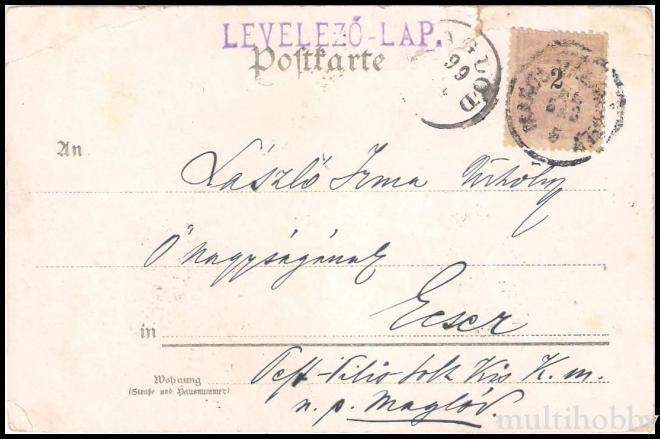 LEVELEZŐ-LAP.
Postkarte
AGLÓD
99
2
An
László Irma
Ő nagyságának
in Ecser
Wohnung
(Straße und Hausnummer)
Pest-Pilis-Solt Kis K. m.
u. p. Maglód.
multihobby